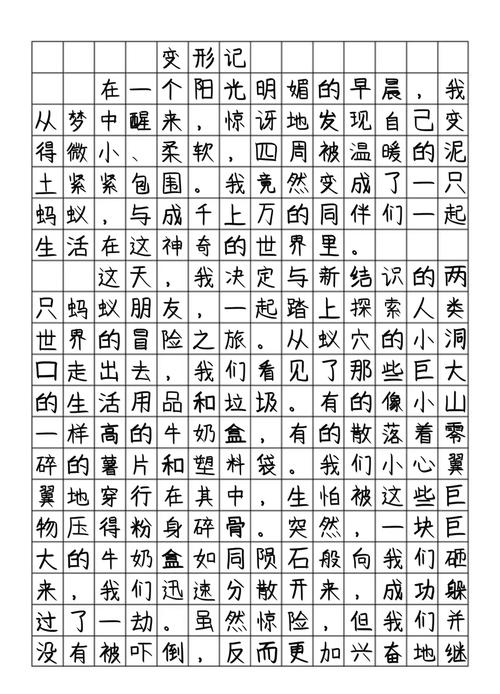 变形记
在一个阳光明媚的早晨，我
从梦中醒来，惊讶地发现自己变
得微小、柔软，四周被温暖的泥
土紧紧包围。我竟然变成了一只
蚂蚁，与成千上万的同伴们一起
生活在这神奇的世界里。
这天，我决定与新结识的两
只蚂蚁朋友，一起踏上探索人类
世界的冒险之旅。从蚁穴的小洞
口走出去，我们看见了那些巨大
的生活用品和垃圾。有的像小山
一样高的牛奶盒，有的散落着零
碎的薯片和塑料袋。我们小心翼
翼地穿行在其中，生怕被这些巨
物压得粉身碎骨。突然，一块巨
大的牛奶盒如同陨石般向我们砸
来，我们迅速分散开来，成功躲
过了一劫。虽然惊险，但我们并
没有被吓倒，反而更加兴奋地继